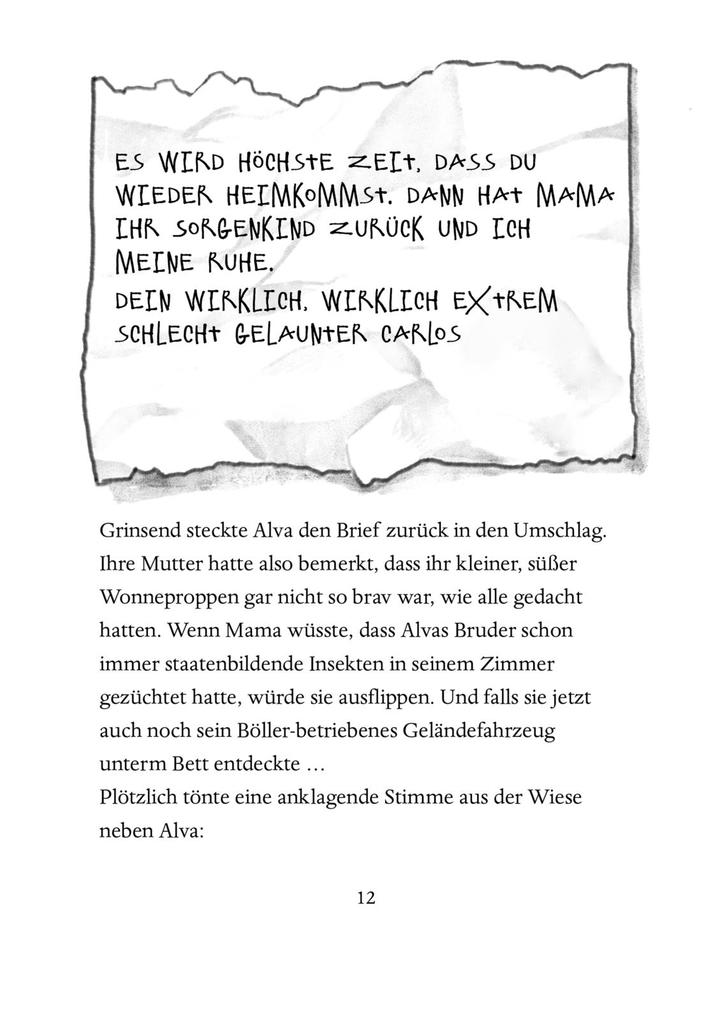 ES WIRD HÖCHSTE ZEIT, DASS DU
WIEDER HEIMKOMMST. DANN HAT MAMA
IHR SORGENKIND ZURÜCK UND ICH
MEINE RUHE.
DEIN WIRKLICH, WIRKLICH EXTREM
SCHLECHT GELAUNTER CARLOS
Grinsend steckte Alva den Brief zurück in den Umschlag.
Ihre Mutter hatte also bemerkt, dass ihr kleiner, süßer
Wonneproppen gar nicht so brav war, wie alle gedacht
hatten. Wenn Mama wüsste, dass Alvas Bruder schon
immer staatenbildende Insekten in seinem Zimmer
gezüchtet hatte, würde sie ausflippen. Und falls sie jetzt
auch noch sein Böller-betriebenes Geländefahrzeug
unterm Bett entdeckte …
Plötzlich tönte eine anklagende Stimme aus der Wiese
neben Alva:
12